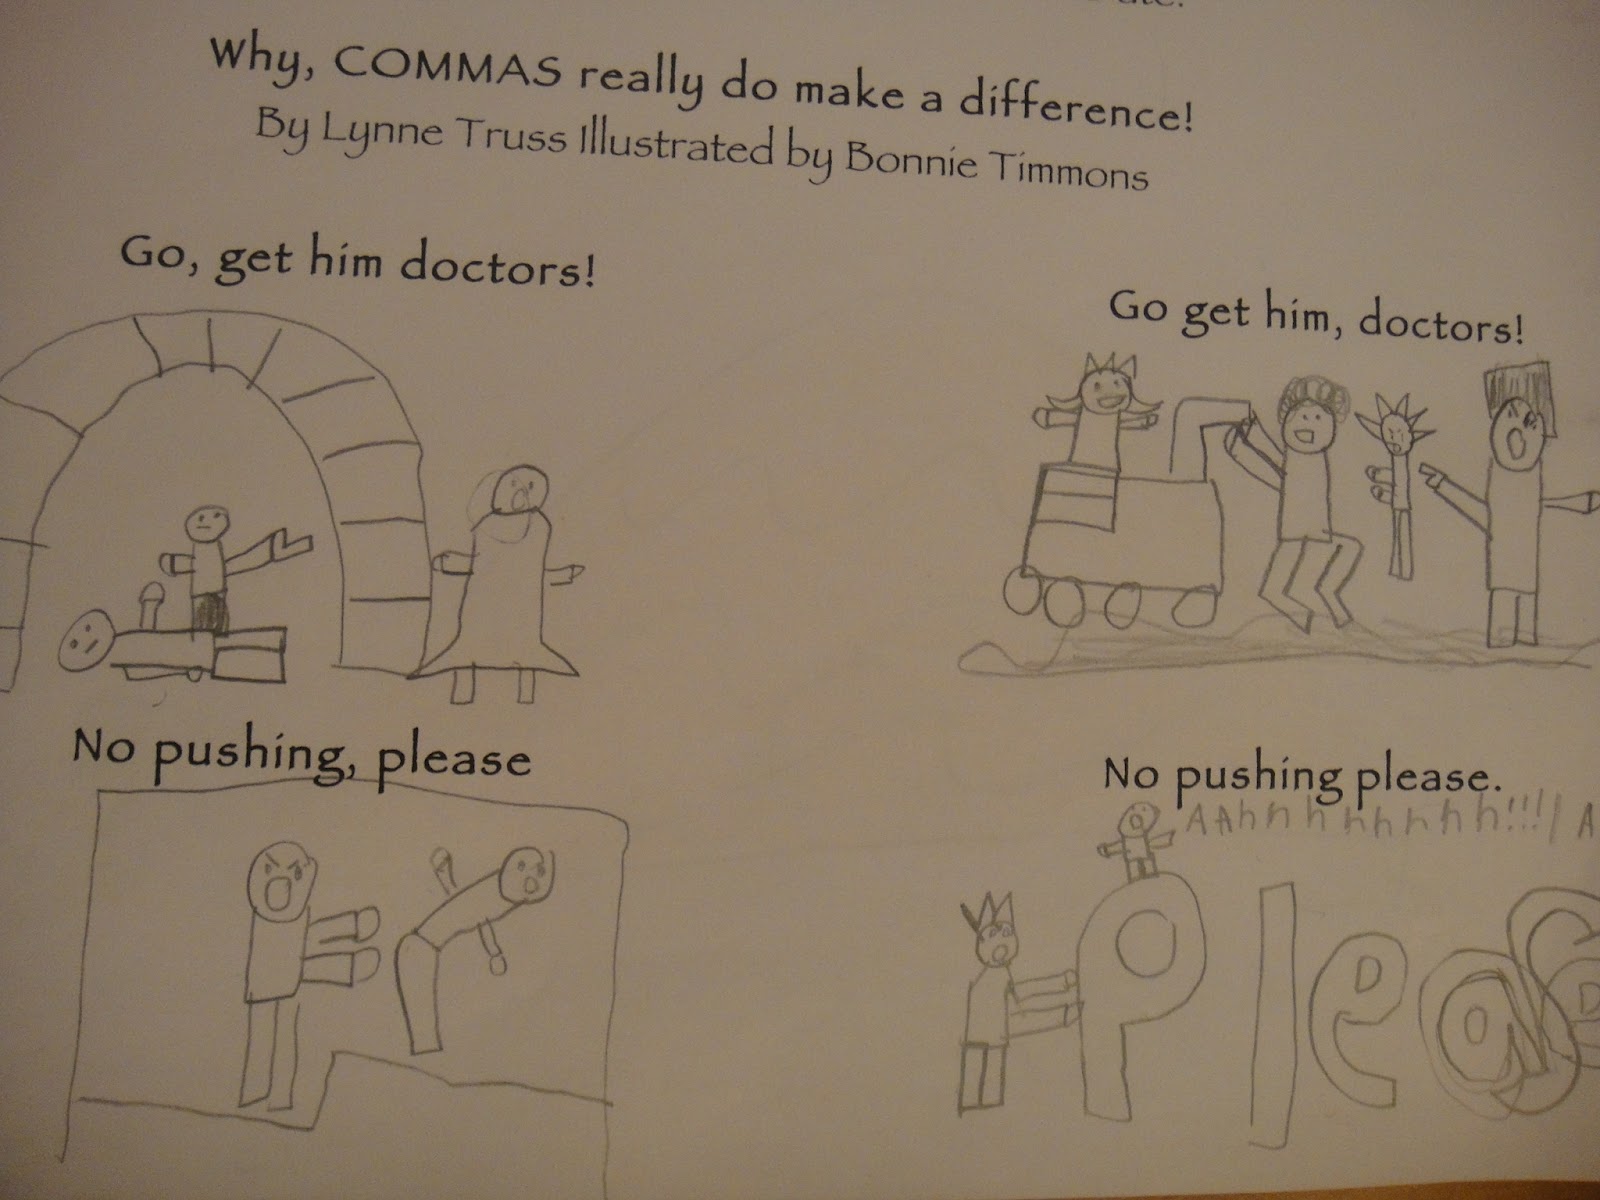 Why, COMMAS really do make a difference!
By Lynne Truss Illustrated by Bonnie Timmons
Go, get him doctors!
Go get him, doctors!
No pushing, please
No pushing please.
AAhhhhhhhhh!!!!
Please